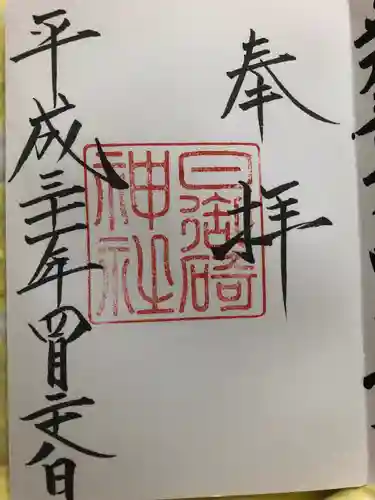 奉拝
日御碕
神社
平成三十一年四月二十日